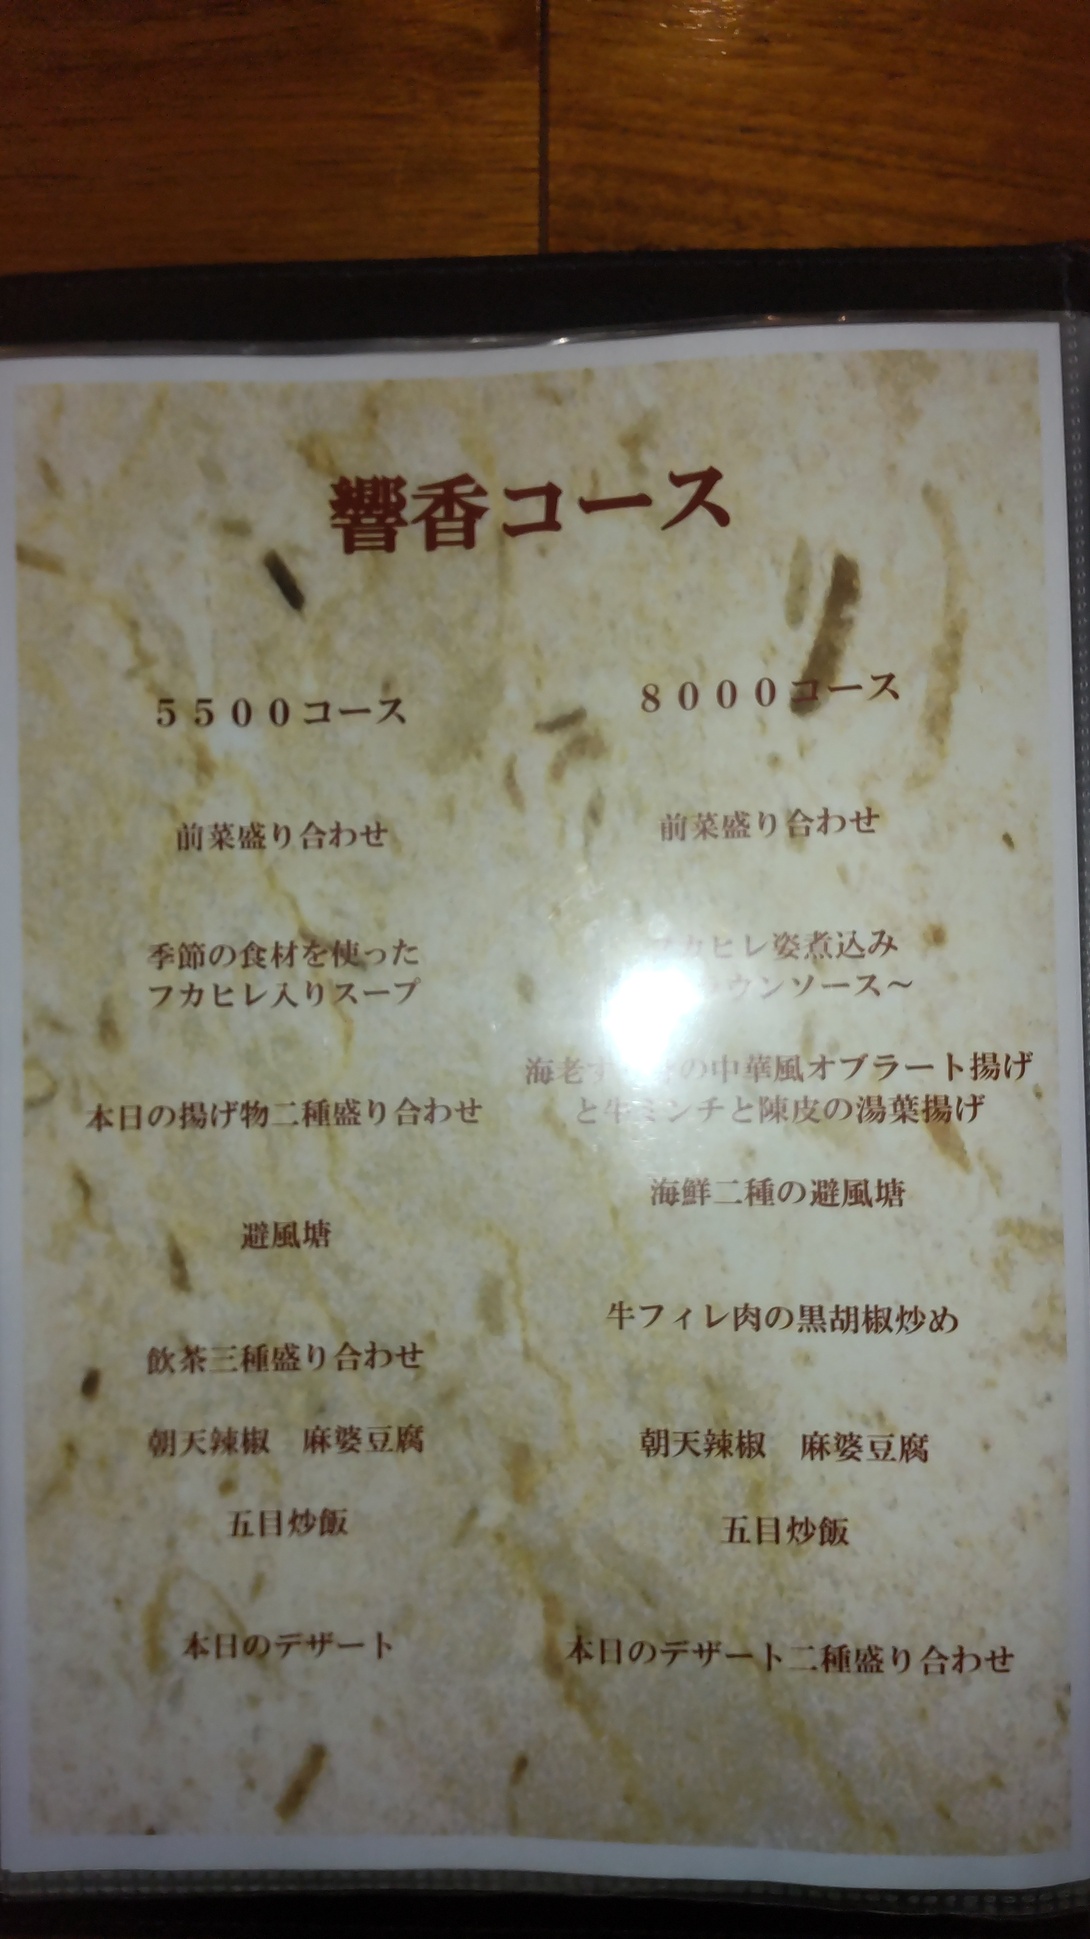 響香コース
5500コース
前菜盛り合わせ
季節の食材を使った
フカヒレ入りスープ
本日の揚げ物二種盛り合わせ
避風塘
飲茶三種盛り合わせ
朝天辣椒　麻婆豆腐
五目炒飯
本日のデザート
8000コース
前菜盛り合わせ
カヒレ姿煮込み
ウンソース～
海老す の中華風オブラート揚げ
と牛ミンチと陳皮の湯葉揚げ
海鮮二種の避風塘
牛フィレ肉の黒胡椒炒め
朝天辣椒　麻婆豆腐
五目炒飯
本日のデザート二種盛り合わせ